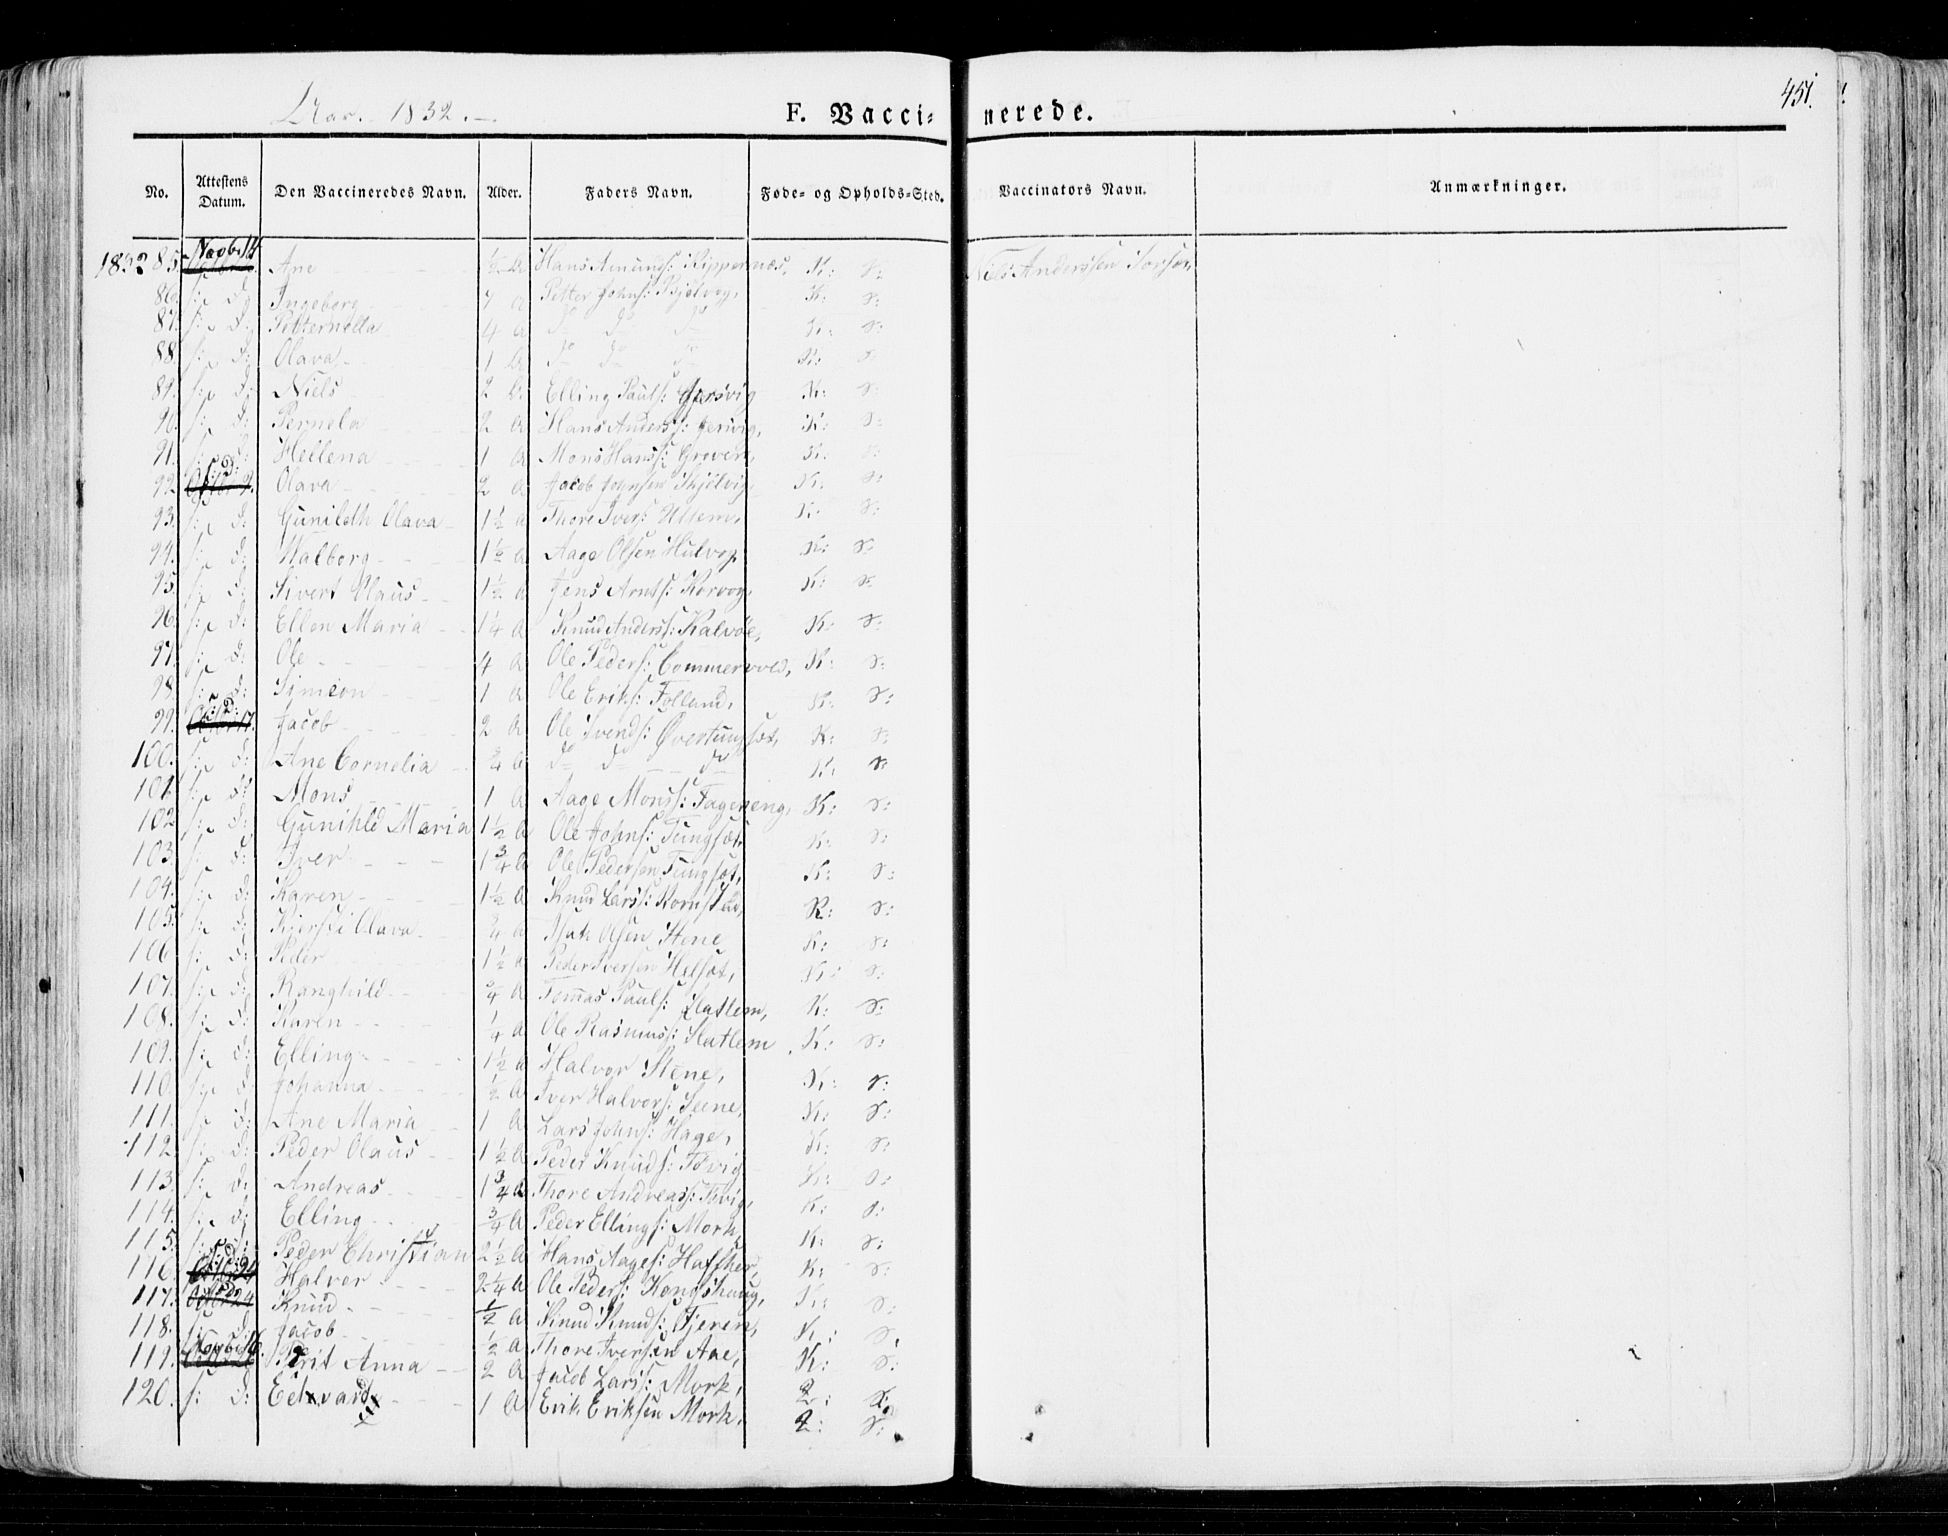 Aar. 1832.
F. Vaccinerede.
451.
No. Attestens Datum. Den Vaccineredes Navn. Alder. Faders Navn. Føde- og Opholds-Sted. Vaccinators Navn. Anmærkninger.
1832 85. Novbr 14 Ane ½ a Hans Amunds: K: s: Niels Anderssen
86. s: d: Ingeborg 7 a Petter Johns: K: s:
87. s: d: Petternella 4 a do do do K: s:
88. s: d: Olava 1 a do do do K: s:
89. s: d: Niels 2 a Elling Pauls: Gjersvig K: s:
90. s: d: Pernela 2 a Hans Anders: K: s:
91. s: d: Hellena 1 a Mons Hans: K: s:
92. s: d: Olava 2 a Jacob Johnsen Skjelvig K: s:
93. s: d: Gunildh Olava 1½ a Thore Ivers: K: s:
94. s: d: Walborg 1½ a Aage Olsen K: s:
95. s: d: Sivert Olaus 1½ a Jens Arnts: Korvog, K: s:
96. s: d: Ellen Maria 1¼ a Knud Anders: Kalvøe, K: s:
97. s: d: Ole 4 a Ole Peders: K: s:
98. s: d: Simeon 1 a Ole Eriks: Folland, K: s:
99. s: d: Jacob 2 a Ole K: s:
100. s: d: Ane Cornelia ¾ a do do do K: s:
101. s: d: Mons 1 a Aage Mons: Fagereng, K: s:
102 s: d: Gunihld Maria 1½ a Ole Johns: Tungsæt, K: s:
103. s: d: Iver 1¾ a Ole Pedersen Tungsæt, K: s:
104. s: d: Karen 1½ a Knud Lars: K: s:
105. s: d: Kjersti Olava ¾ a Isak Olsen Stene K: s:
106 s: d: Peder 1½ a Peder Iversen Helsæt, K: s:
107. s: d: Ranghild ¾ a Tomas Pauls: Hatlem, K: s:
108. s: d: Karen ¼ a Ole Rasmus: Hatlem K: s:
109. s: d: Elling 1½ a Halvor Stene, K: s:
110. s: d: Johanna ½ a Iver Halvors: K: s:
111. s: d: Ane Maria 1 a Lars Johns: Hage, K: s:
112. s: d: Peder Olaus 1½ a Peder Knuds: K: s:
113. s: d: Andreas 1¾ a Thore Andreas: K: s:
114. s: d: Elling ¾ a Peder Ellings: Mork K: s:
115. s: d: Peder Christian 2½ a Hans Aages: K: s:
116. s: d: Halvor 2¼ a Ole Peders: Kongshaug, K: s:
117. s: d: Knud ½ a Knud Knuds: K: s:
118. s: d: Jacob ½ a Thore Iversen Aae, K: s:
119. Novbr 16. Berit Anna 2 a Jacob Lars: Mork, s:
120. s: d: Edvard 1 a Erik Eriksen Mork. s: